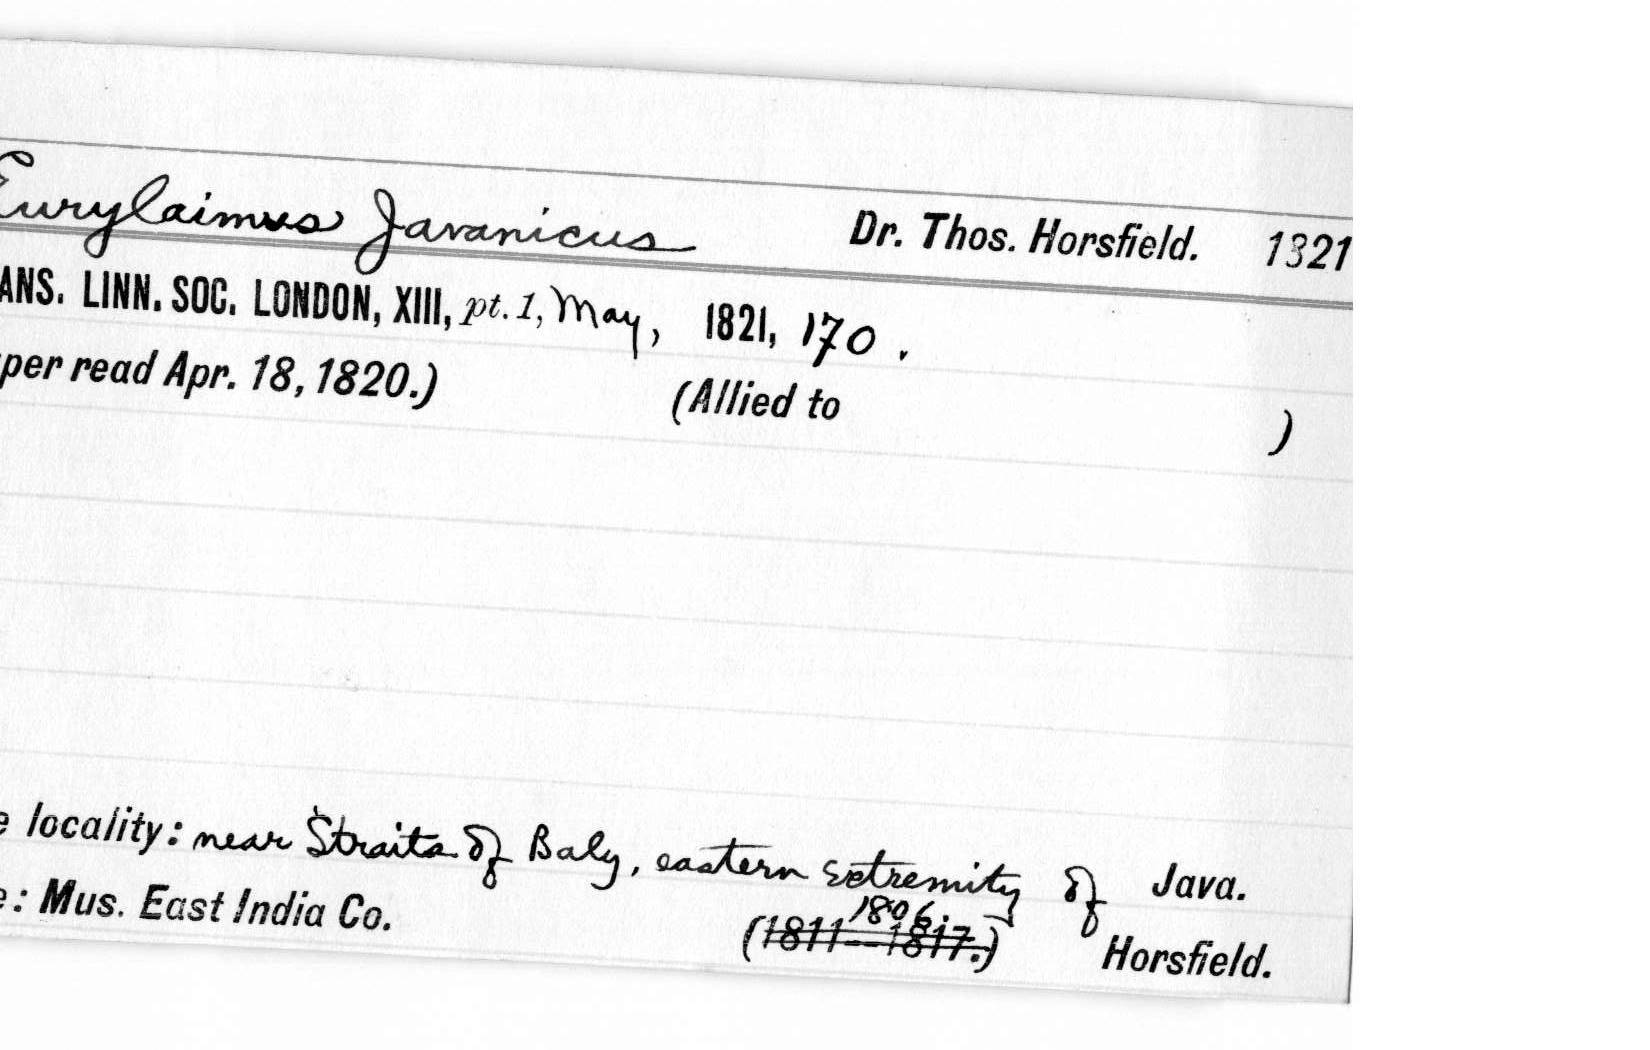 Eurylaimus Javanicus Dr. Thos. Horsfield. 1821
ANS. LINN. SOC. LONDON, XIII, pt. 1, May, 1821, 170.
per read Apr. 18, 1820.) (Allied to )
e locality: near Straits of Baly, eastern extremity of Java.
1806.
e: Mus. East India Co. (1811–1817.) Horsfield.